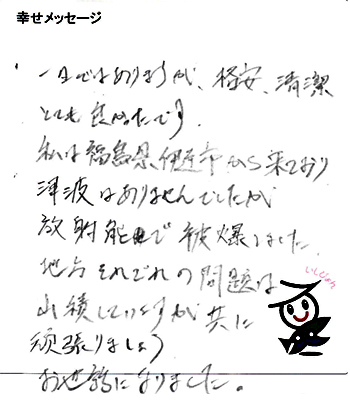 幸せメッセージ
一日ではありますが、格安、清潔
とても良かったです。
私は福島県伊達市から来ており
津波はありませんでしたが
放射能で被爆しました。
地方それぞれの問題は
山積していますが共に
頑張りましょう
お世話になりました。
いしぴょん